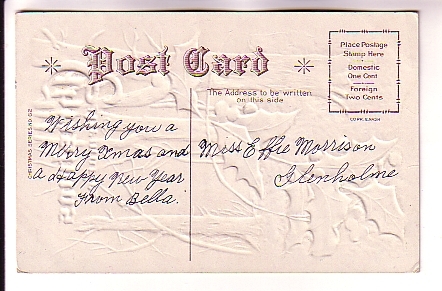 Post Card
The Address to be written
on this side
Place Postage
Stamp Here
Domestic
One Cent
Foreign
Two Cents
COPR. E. NASH
CHRISTMAS SERIES NO. G2
Wishing you a
Merry Xmas and
a Happy New Year
From Bella.
Miss Effie Morrison
Glenholme